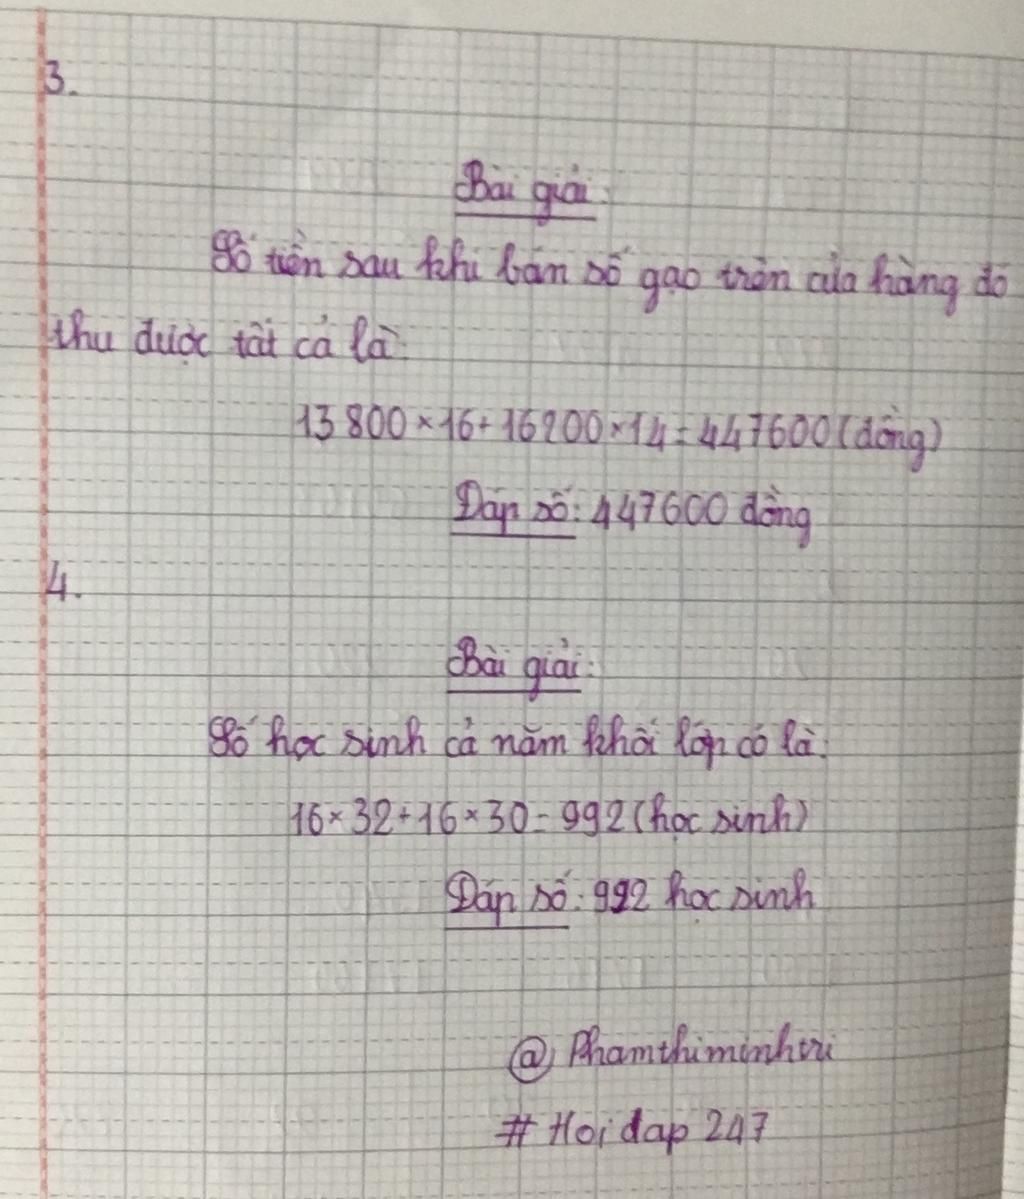 3.
Bài giải:
Số tiền sau khi bán số gạo trên của hàng đó
thu được tất cả là:
13 800 × 16 + 16200 × 14 = 447600 (đồng)
Đáp số: 447600 đồng
4.
Bài giải:
Số học sinh cả năm khối lớp có là:
16 × 32 + 16 × 30 = 992 (học sinh)
Đáp số: 992 học sinh
@ Phamthiminhtri
# Hoi dap 247